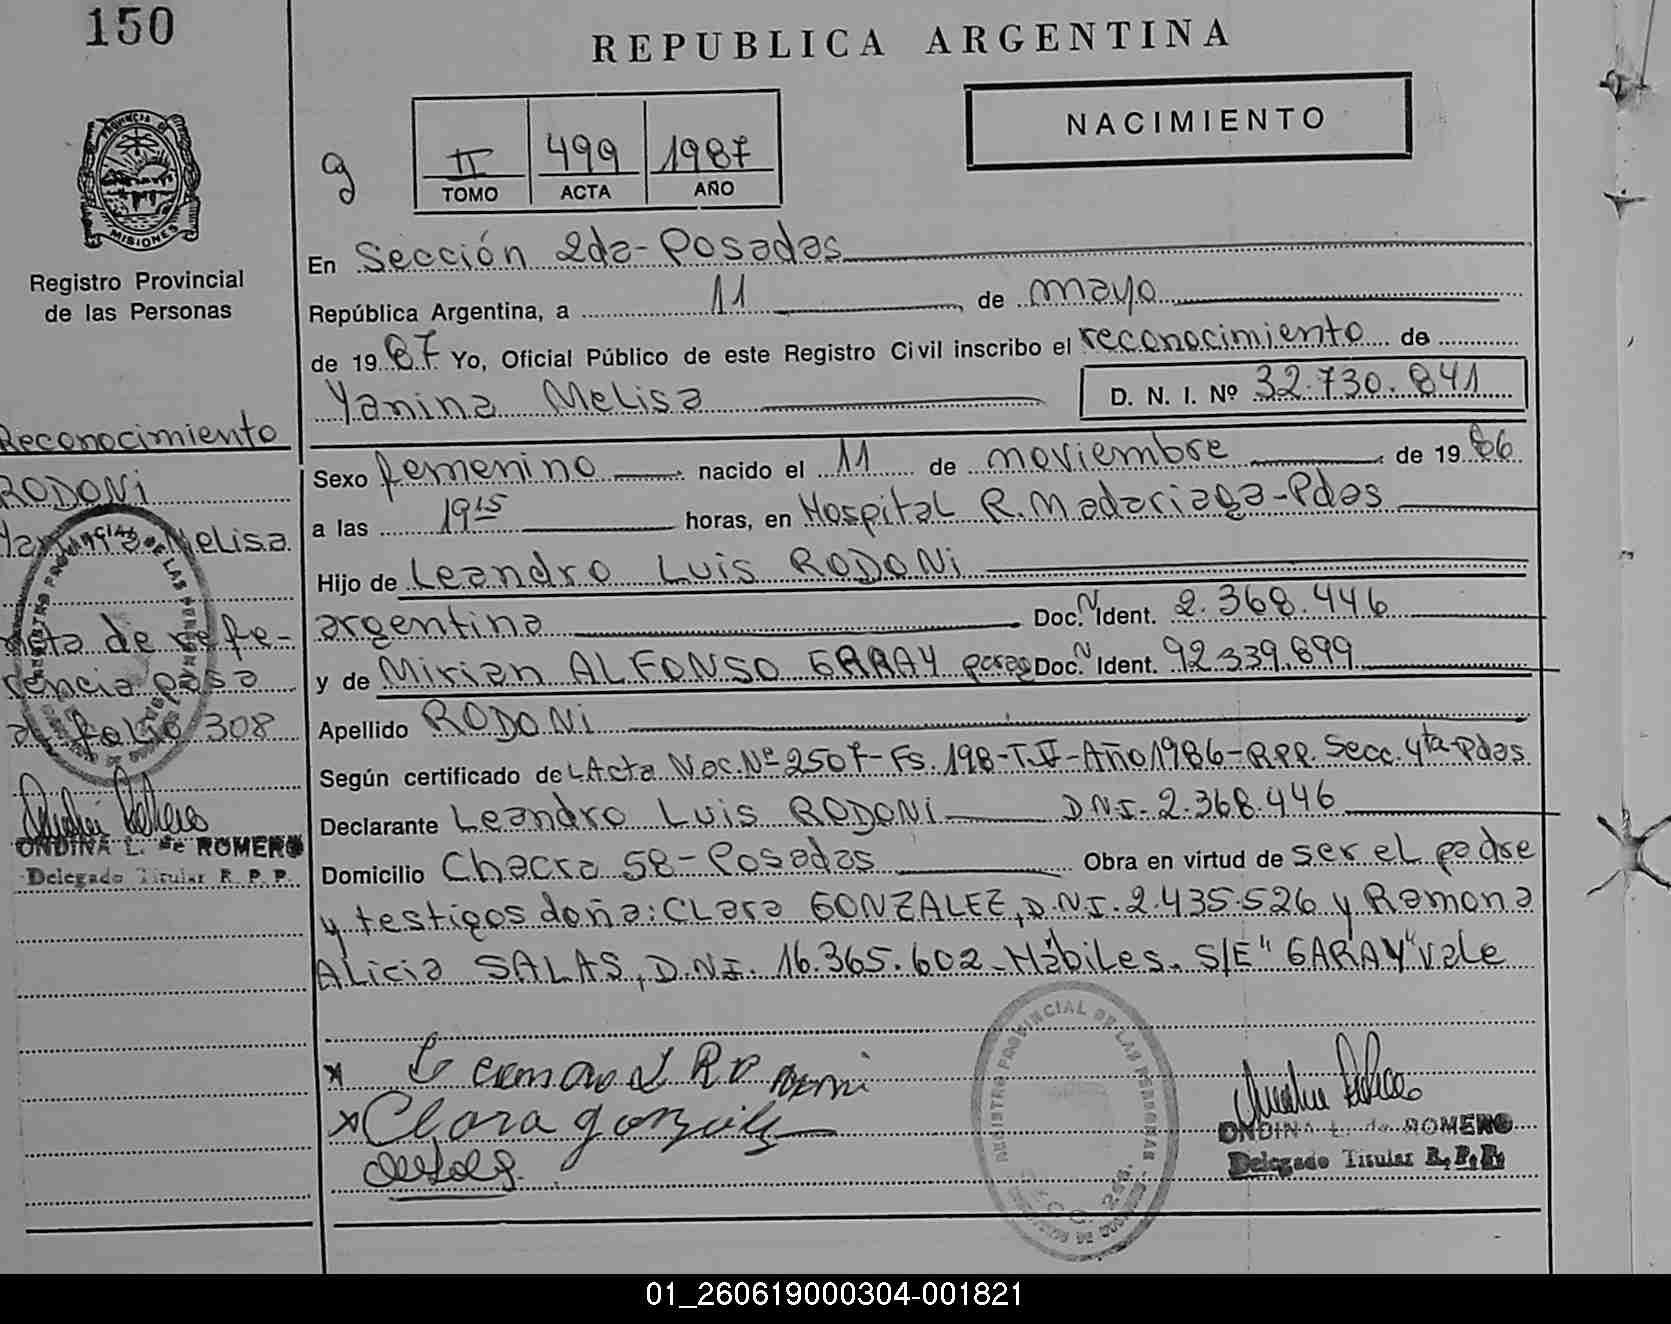 150
REPUBLICA ARGENTINA
NACIMIENTO
g
II 499 1987
TOMO ACTA AÑO
PROVINCIA DE
MISIONES
Registro Provincial
de las Personas
En Sección 2da-Posadas
República Argentina, a 11 de mayo
de 1987 Yo, Oficial Público de este Registro Civil inscribo el reconocimiento de
Yanina Melisa D. N. I. Nº 32.730.841
Sexo femenino nacido el 11 de noviembre de 1986
a las 19 15 horas, en Hospital R. Madariaga-Pdas
Hijo de Leandro Luis RODONi
argentina Doc. N Ident. 2.368.446
y de Mirian ALFONSO GARAY Doc. N Ident. 92.339.899
Apellido RODONi
Según certificado de L Acta Nac. Nº 2507-Fs. 198-T.II-Año 1986-R.P.P. Secc. 4ta-Pdas.
Declarante Leandro Luis RODONi D.N.I. 2.368.446
Domicilio Chacra 58-Posadas Obra en virtud de ser el padre
y testigos doña: Clara GONZALEZ, D.N.I. 2.435.526 y Ramona
Alicia SALAS, D.N.I. 16.365.602. Hábiles. S/E "GARAY" vale
x
x Clara gonzalez
REGISTRO PROVINCIAL DE LAS PERSONAS
ONDINA L. de ROMERO
Delegado Titular R. P. P.
Reconocimiento
RODONi
Yanina Melisa
nota de refe-
rencia pasa
al folio 308
ONDINA L. de ROMERO
Delegado Titular R. P. P.
01_260619000304-001821